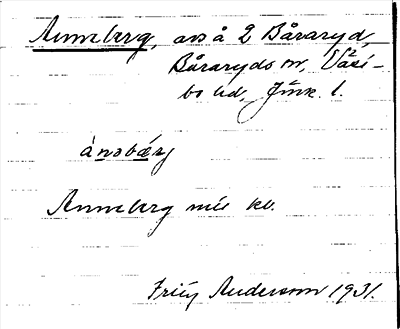 Anneberg, avs å 2 Båraryd,
Båraryds sn, Västbo hd, Jönk. l.
ànəbærj
Anneberg mil kv.
Andersson 1931.